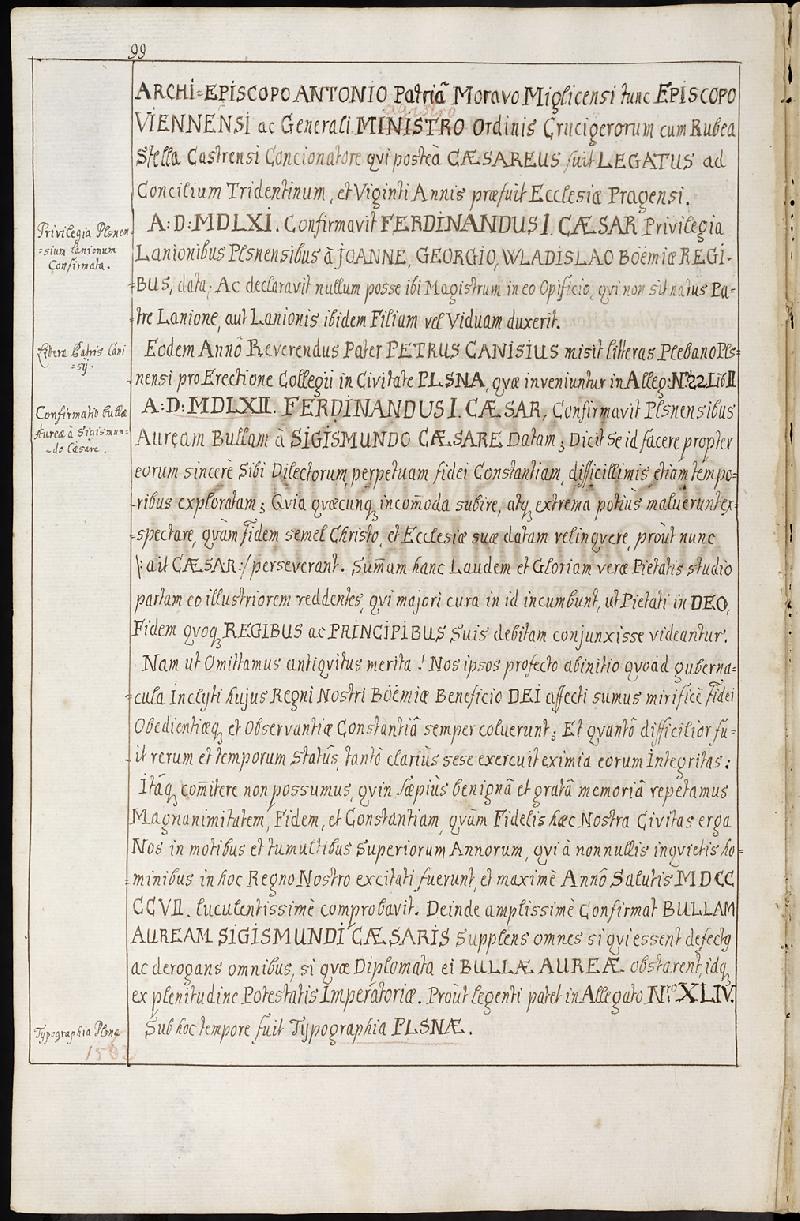 99
ARCHI=EPISCOPO ANTONIO Patriâ Moravo Miglicensi tunc EPISCOPO
VIENNENSI ac Generali MINISTRO Ordinis Crucigerorum cum Rubea
Stella Castrensi Concionatore qui posteà CÆSAREUS fuit LEGATUS ad
Concilium Tridentinum, et Viginti Annis præfuit Ecclesiæ Pragensi.
Privilegia Plsnen
=sium Lanionum
Confirmata.
A: D: MDLXI. Confirmavit FERDINANDUS I. CÆSAR Privilegia
Lanionibus Plsnensibus à JOANNE, GEORGIO, WLADISLAO Böemiæ REGI-
BUS, data; Ac declaravit nullum posse ibi Magistrum in eo Opificio, qui non sit natus Pa-
tre Lanione, aut Lanionis ibidem Filiam vel Viduam duxerit.
Litera Patris Cani
=sij.
Eodem Annô Reverendus Pater PETRUS CANISIUS misit litteras Plebano Pls=
nensi pro Erectione Collegii in Civitate PLSNA, quæ inveniuntur in Alleg: Nrô 22 Lib II
Confirmatio Bullæ
Aureæ à Sigismun=
do Cæsare.
A: D: MDLXII. FERDINANDUS I. CÆSAR, Confirmavit Plsnensibus
Auream Bullam à SIGISMUNDO CÆSARE Datam; Dicit se id facere propter
eorum sincerè Sibi Dilectorum, perpetuam fidei Constantiam, difficillimis etiam tempo=
ribus exploratam; Quia quæcunq, incom̄oda subire, atq, extrema potiùs maluerunt ex=
spectare, quàm fidem semel Christo, et Ecclesiæ suæ datam relinquere, proùt nunc
/: ait CÆSAR :/ perseverant. Sum̄am hanc Laudem et Gloriam veræ Pietatis studio
partam eo illustriorem reddentes, qui majori cura in id incumbunt, ut Pietati in DEO,
Fidem quoq, REGIBUS ac PRINCIPIBUS Suis debitam conjunxisse videantur.
Nam ut Omittamus antiquitus merita! Nos ipsos profecto ab initio quoad guberna=
cula Inclyti hujus Regni Nostri Böemiæ Beneficio DEI affecti sumus mirificè fidei
Obedientiæq, et Observantiæ Constantiâ semper coluerunt; Et quantò difficilior fu=
it rerum et temporum status, tantò clariùs sese exercuit eximia eorum Integritas:
Itaq, com̄itere non possumus, quin sæpiùs benignâ et gratâ memoriâ repetamus
Magnanimitatem, Fidem, et Constantiam, quàm Fidelis hæc Nostra Civitas erga
Nos in motibus et tumultibus Superiorum Annorum, qui à nonnullis inquietis ho=
minibus in hoc Regno Nostro excitati fuerunt, et maximè Annô Salutis MDCC
CCVII. luculentissimè comprobavit. Deinde amplissimè Confirmat BULLAM
AUREAM SIGISMUNDI CÆSARIS Supplens omnes si qui essent defectꝰ
ac derogans omnibus, si quæ Diplomata ei BULLÆ AUREÆ obstarent, idq,
ex plenitudine Potestatis Imperatoriæ. Proùt legenti patet in Allegato Nrô XLIV.
Typographia Plsnæ
1562
Sub hoc tempore fuit Typographia PLSNÆ.